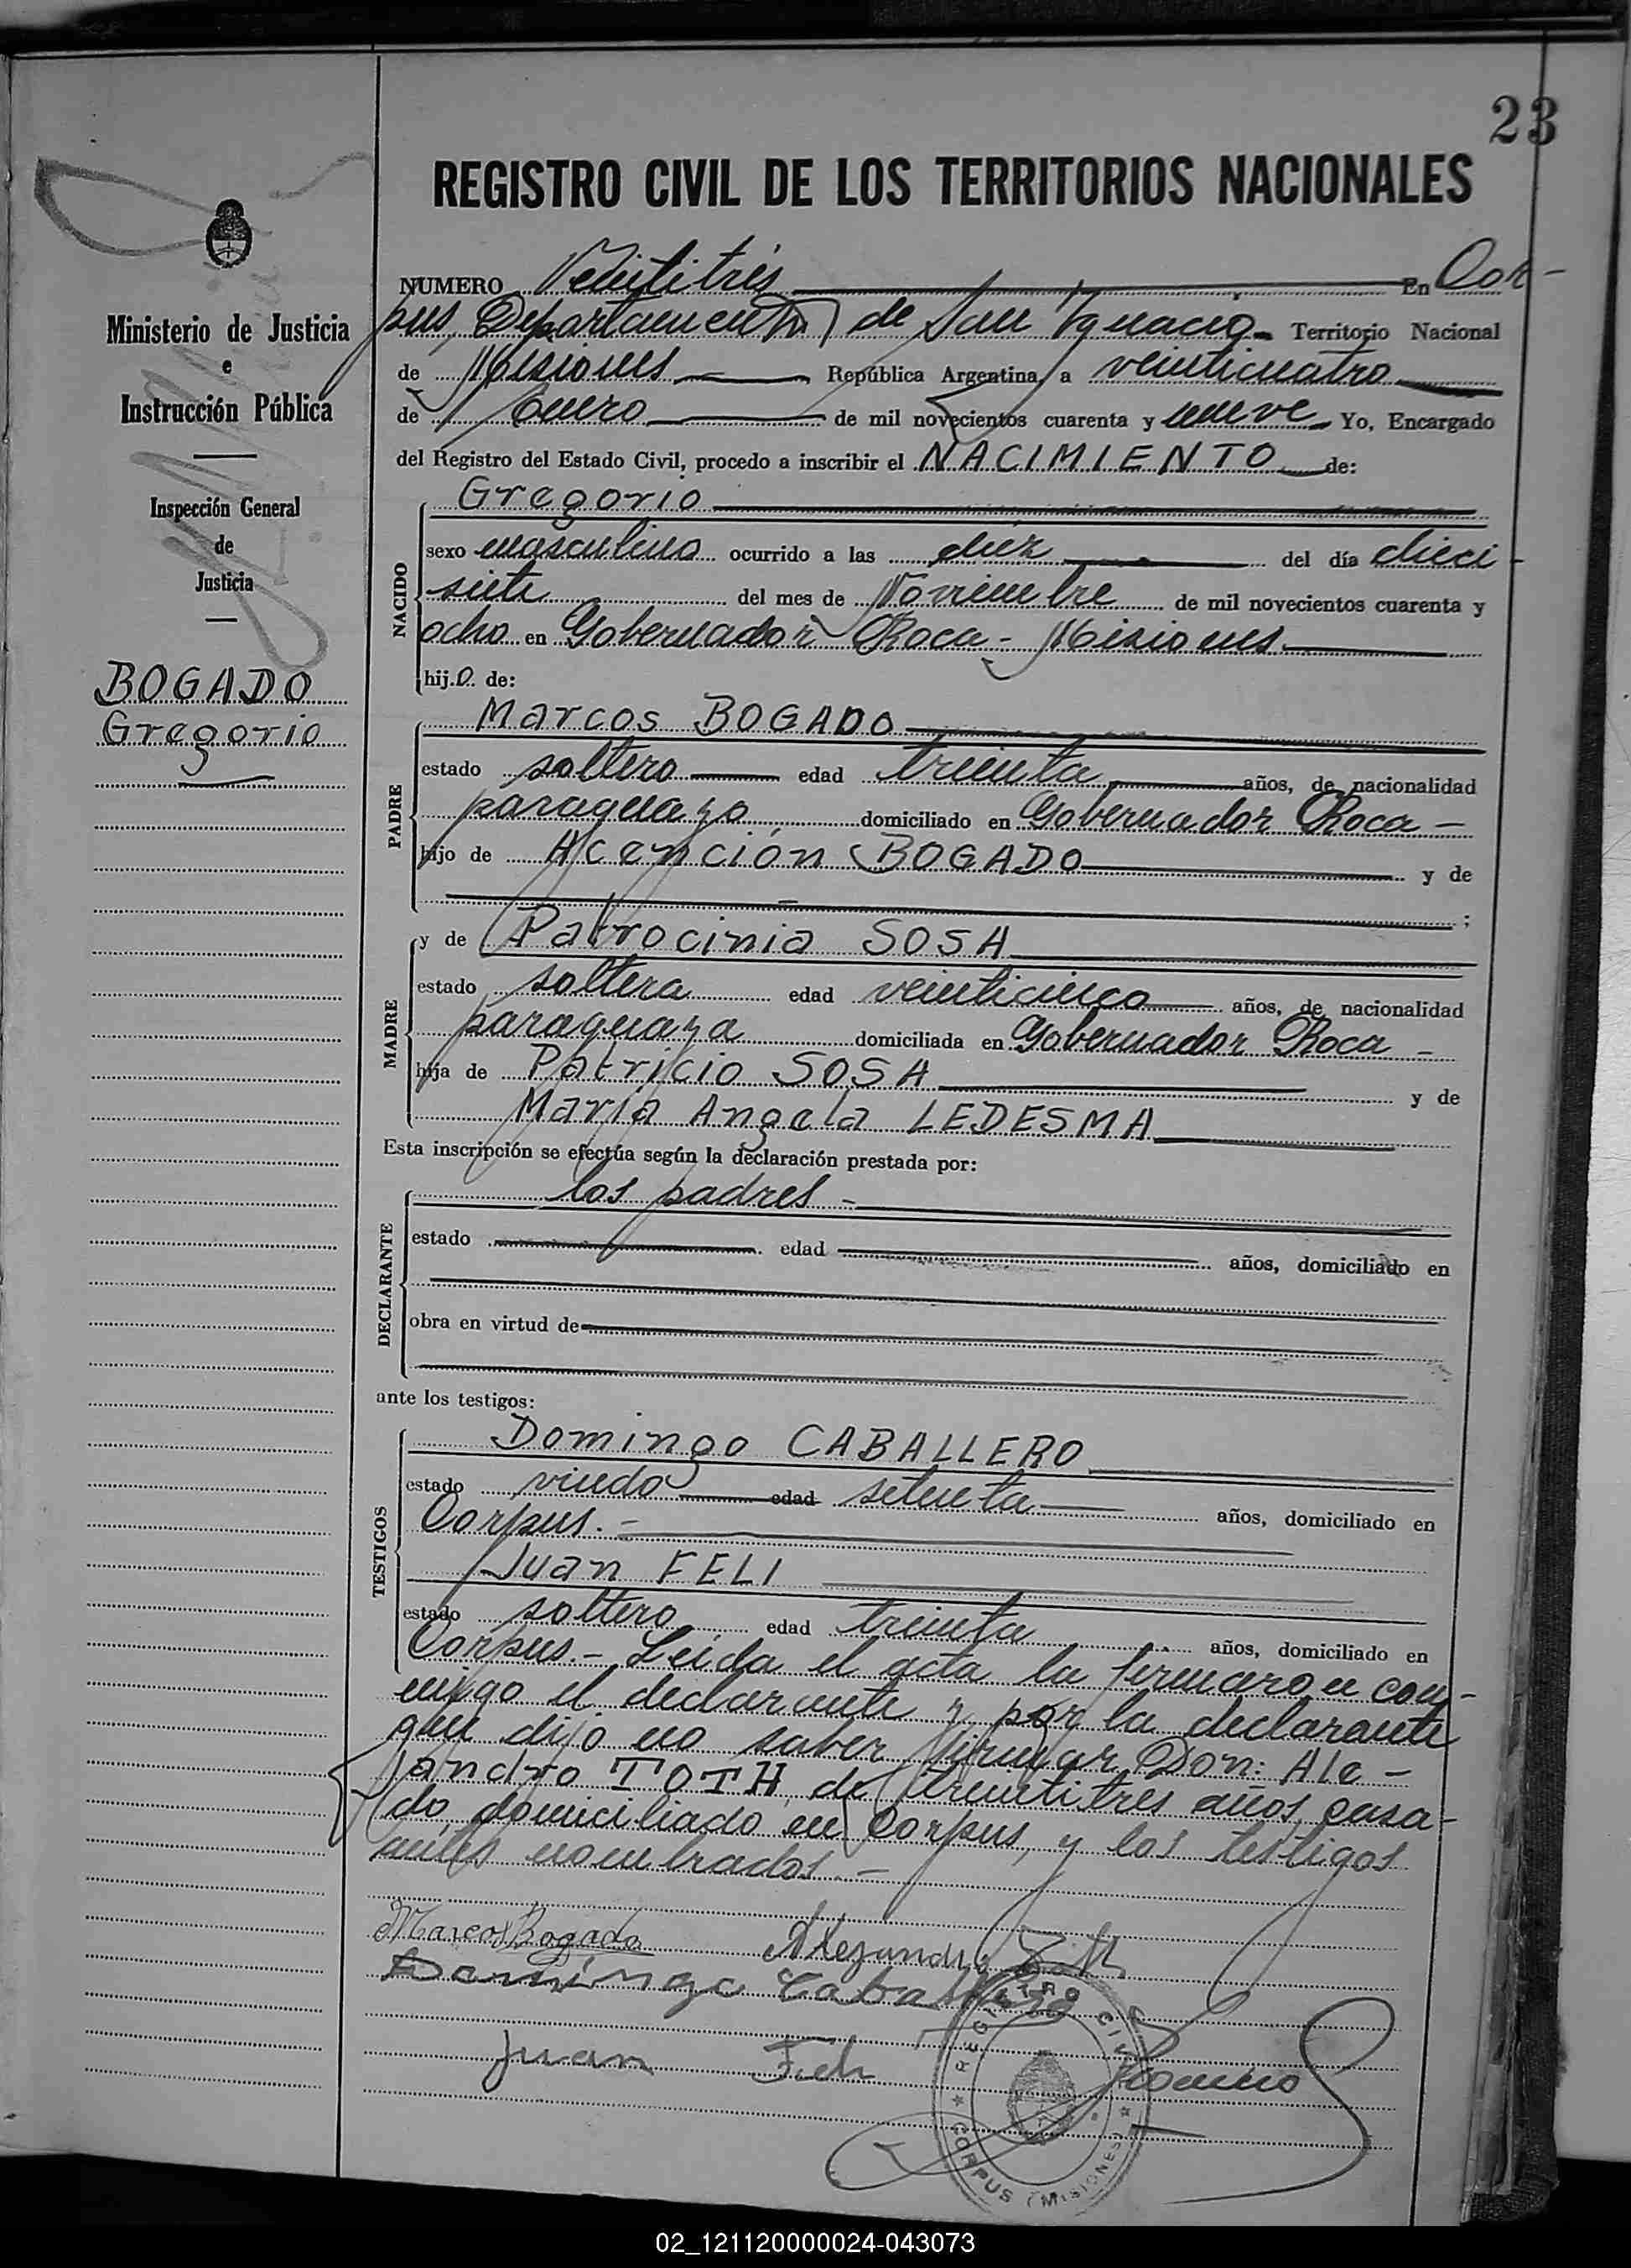 23
REGISTRO CIVIL DE LOS TERRITORIOS NACIONALES
NUMERO Veintitrés En Cor-
pus, Departamento de San Ignacio Territorio Nacional
de Misiones República Argentina, a veinticuatro
de Enero de mil novecientos cuarenta y nueve Yo, Encargado
del Registro del Estado Civil, procedo a inscribir el NACIMIENTO de:
Gregorio
sexo masculino ocurrido a las diez del día dieci-
siete del mes de Noviembre de mil novecientos cuarenta y
ocho en Gobernador Roca - Misiones
hijo de:
NACIDO
Marcos BOGADO
estado soltero edad treinta años, de nacionalidad
paraguayo domiciliado en Gobernador Roca -
hijo de Acención BOGADO y de
;
PADRE
y de Patrocinia SOSA
estado soltera edad veinticinco años, de nacionalidad
paraguaya domiciliada en Gobernador Roca -
hija de Patricio SOSA y de
María Angela LEDESMA
MADRE
Esta inscripción se efectúa según la declaración prestada por:
los padres -
estado edad años, domiciliado en
obra en virtud de
DECLARANTE
ante los testigos:
Domingo CABALLERO
estado viudo edad setenta años, domiciliado en
Corpus. -
Juan FELI
estado soltero edad treinta años, domiciliado en
TESTIGOS
Corpus. - Leida el acta la firmaron con-
migo el declarante y por la declarante
que dijo no saber firmar Don: Ale-
jandro TOTH, de treintitres años, casa-
do domiciliado en Corpus, y los testigos
antes nombrados. -
Marcos Bogado Alejandro Toth
Domingo Caballero
Juan Feli
REGISTRO CIVIL
CORPUS (MISIONES)
Ministerio de Justicia
e
Instrucción Pública
Inspección General
de
Justicia
BOGADO
Gregorio
02_121120000024-043073